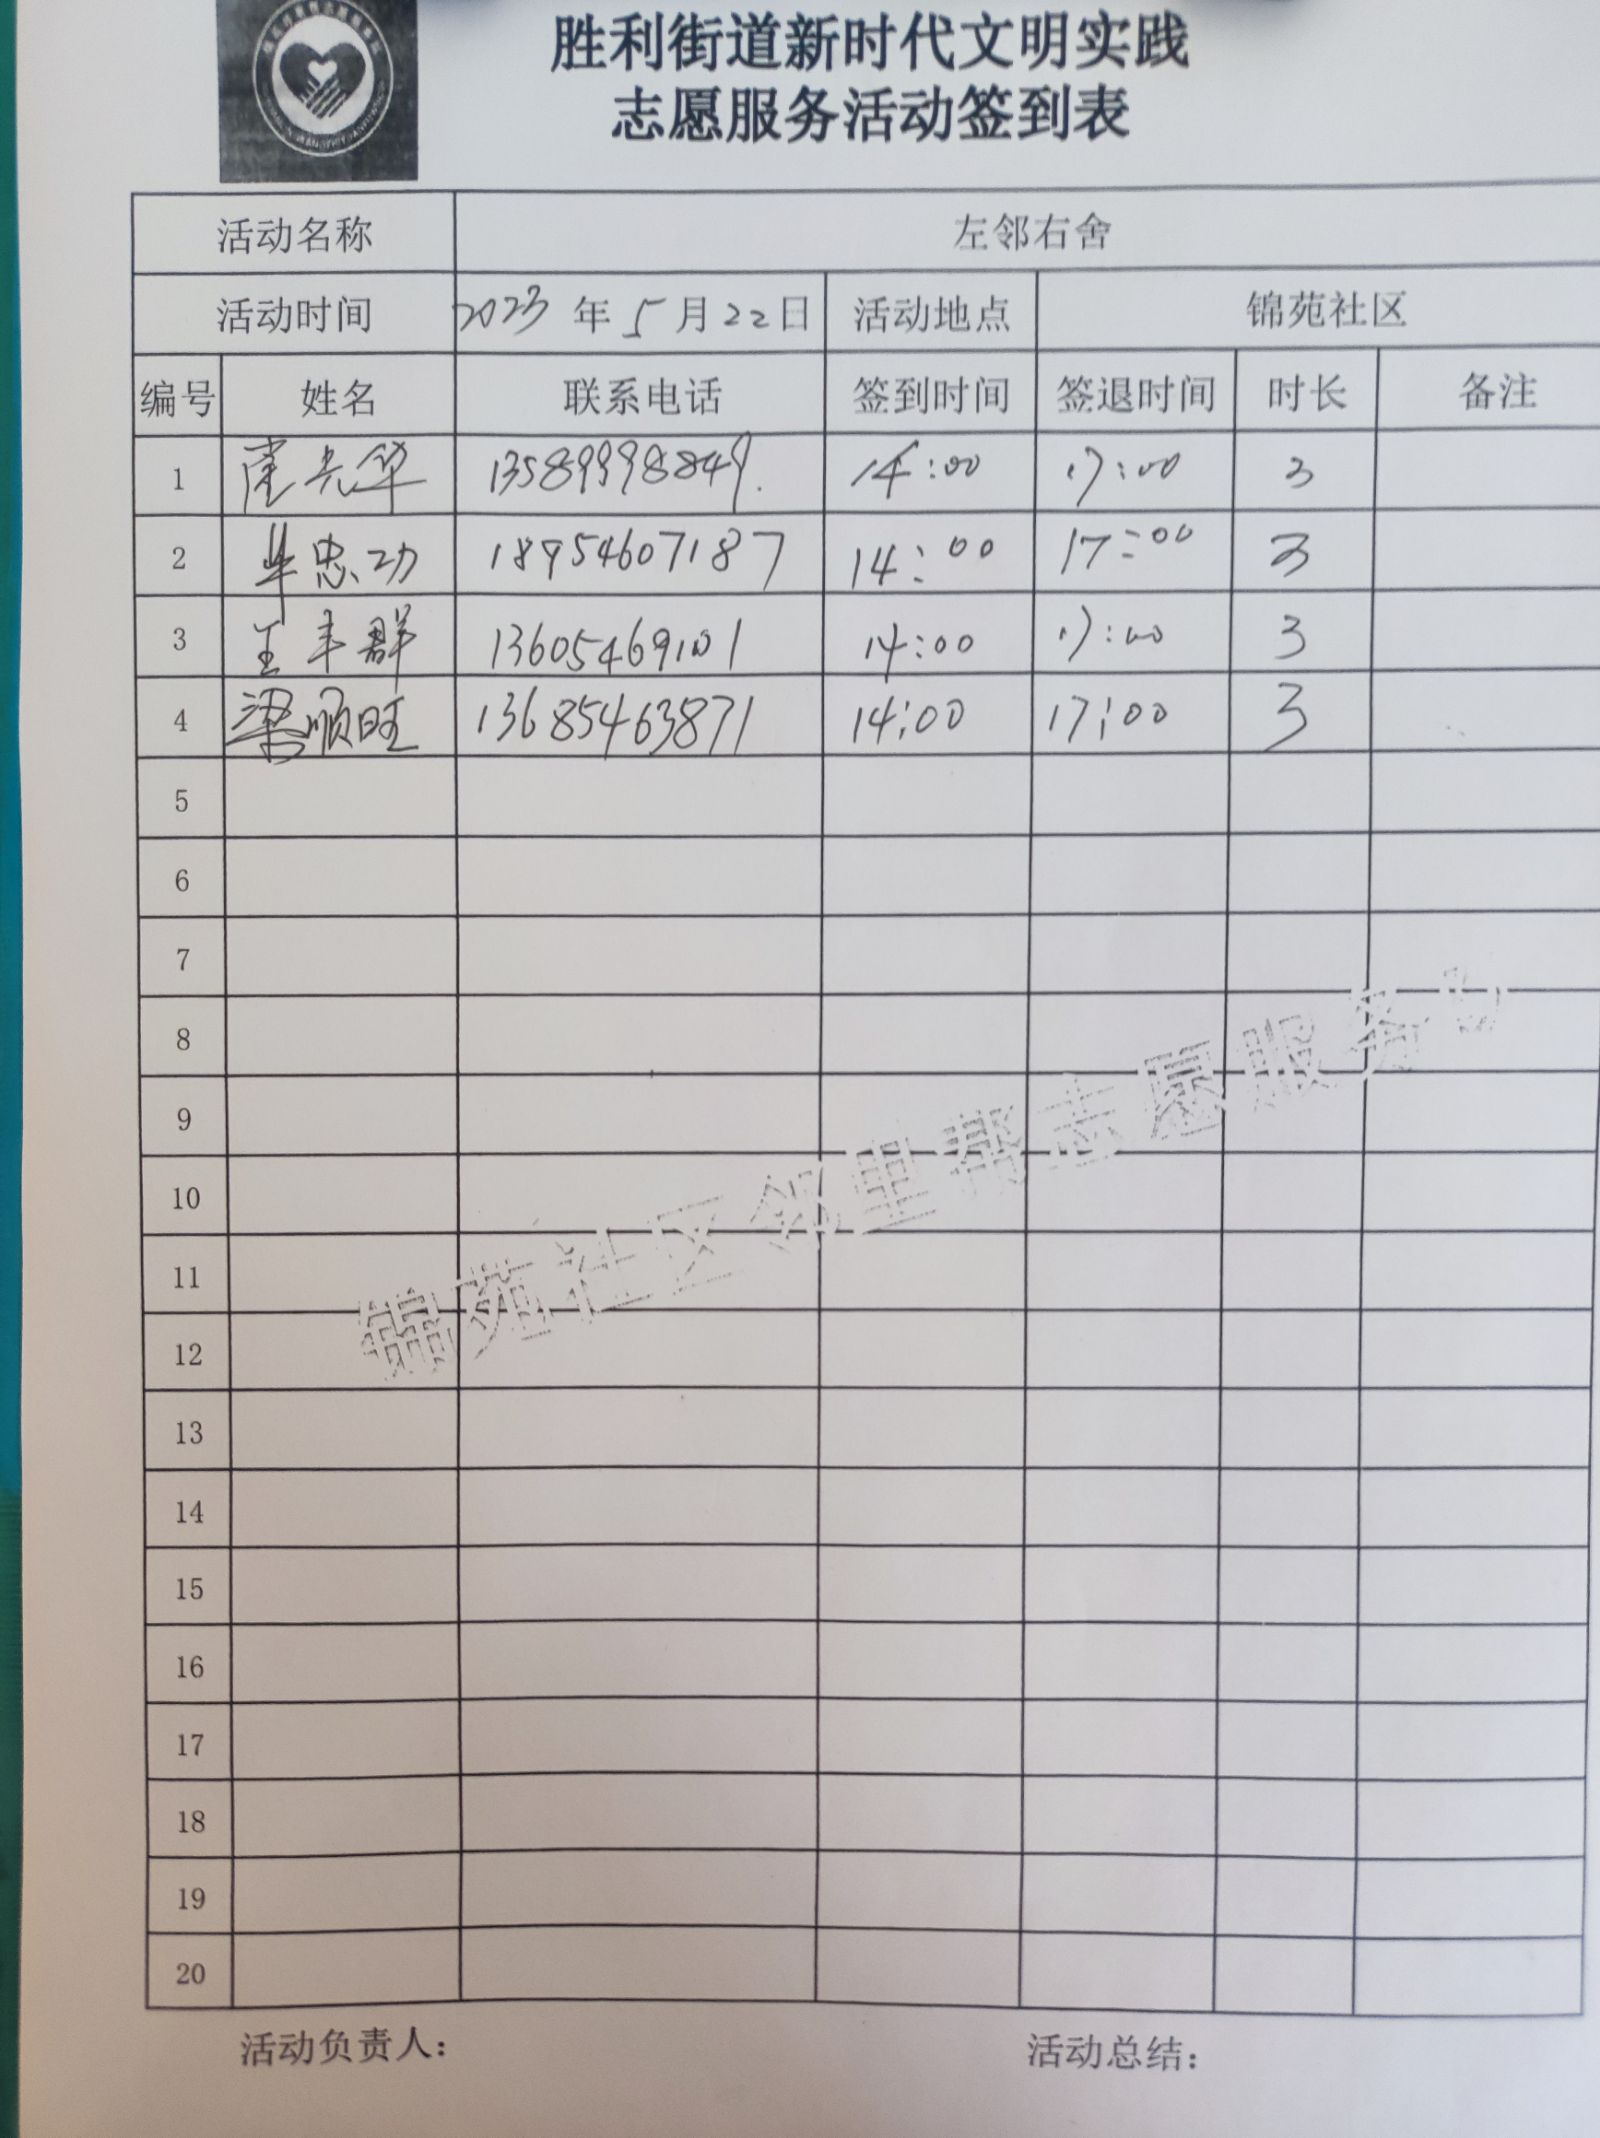 胜利街道新时代文明实践
志愿服务活动签到表
活动名称 左邻右舍
活动时间 2023年5月22日 活动地点 锦苑社区
编号 姓名 联系电话 签到时间 签退时间 时长 备注
1 13589998849. 14:00 17:00 3
2 毕忠功 18954607187 14:00 17:00 3
3 王丰群 13605469101 14:00 17:00 3
4 梁顺旺 13685463871 14:00 17:00 3
5
6
7
8
9
10
11
12
13
14
15
16
17
18
19
20
锦苑社区邻里帮志愿服务
活动负责人: 活动总结: